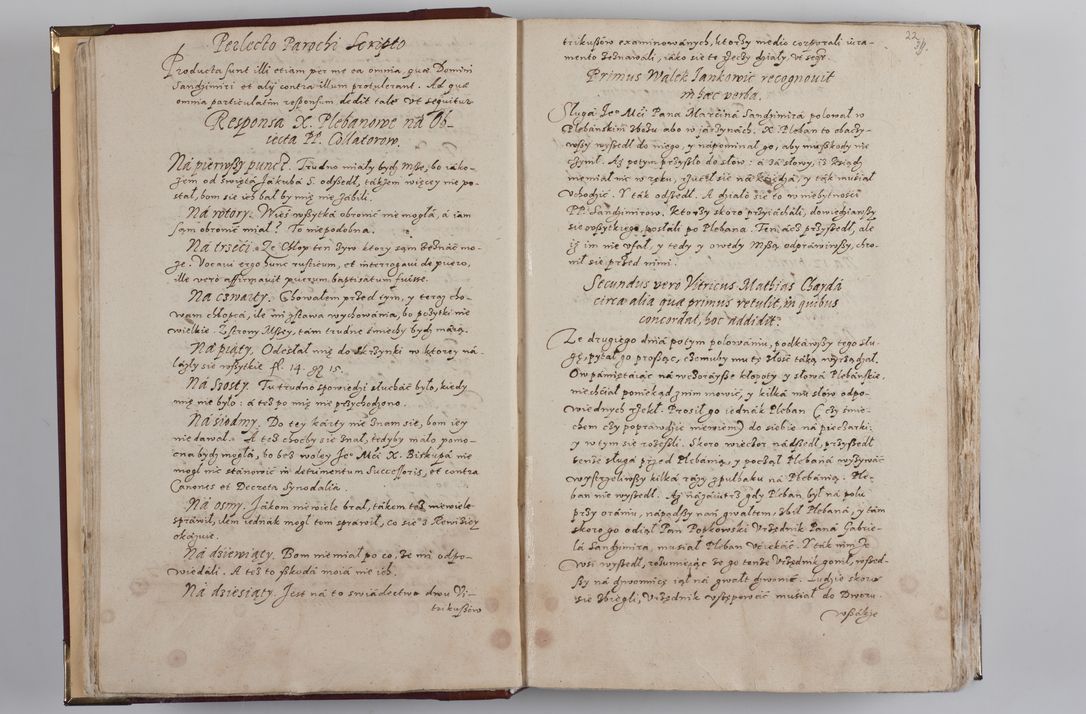 Perlecto Parochi Scripto
Producta sunt illi etiam per me ea omnia, quæ Domini
Sandzimiri et alij contra illum protulerant. Ad quæ
omnia particulatim responsum dedit tale vt sequitur
Responsa X. Plebanowe ná Ob-
iecta PP. Collatorow.
Ná pierwßy punct. Trudno miáły bydź Mße, bo iáko-
żem od święta Jákuba S. odßedł, tákżem więcey nie po-
stał, bom sie ieſ bał by mię nie zábili.
Ná wtory. Wieś wßytká obronić nie mogłá, á iam
sąm obronić miał? To niepodobna.
Ná trzeci. Ze Chłop ten żyw ktory sąm zeznáć mo-
że. Vocaui ergo hunc rusticum, et interrogaui de puero,
ille verò affirmauit puerum baptisatum fuisse.
Ná czwarty. Chowałem przed tym, y teraz cho-
wam chłopcá, ile mi zstawa wychowánia, bo pożytki nie
wielkie. Zstrony Mßey, tám trudne śmiechy bydź máią.
Ná piąty. Odesłał mię do skrzynki w ktorey ná-
lázły sie wßytkie fl. 14. gg 15.
Ná ßosty. Tu trudno spowiedzi słucháć było, kiedy
mię nie było: á też po mię nie przychodzono.
Ná siodmy. Do tey kárty nie znam się, bom iey
nie dawał. A też choćby sie znał, tedyby máło pomo-
cna bydź mogłá, bo bez woley Jeº Mći X. Biskupá nie
mogł nic stánowić in detrimentum Successoris, et contra
Canones et Decreta Synodalia.
Ná osmy. Jákom niewiele brał, tákem też niewiele
spráwił, ilem iednák mogł tom spráwił, co sie z Rewisiey
okázuie.
Ná dziewiąty. Bom nie miał po co, że mi odpo-
wiedáli. A też to ßkodá moiá nie ich.
Ná dziesiąty. Jest ná to świádectwo dwu Vi-
trikußow
22
39.
trikußow examinowánych, ktorzy medio corporali iura-
mento zeznawali, iáko sie te rzeczy dziáły, vt seqr.
Primus Walek Jankowic recognouit
in hæc verba.
Sługá Jeº Mći Páná Marcina Sandzimirá polował w
Plebáńskim zbożu ábo w iárzynách. X. Pleban to obaczy-
wßy wyßedł do niego, y nápominał go, áby mu ßkody nie
czynił. Aż potym przyßło do słow: á zá słowy, iż Xsiądz
nie miał nic w ręku, rzucił sie ná księdzá, y ták musiał
vchodzić. Y ták odßedł. A dziáło sie to w niebytności
PP. Sandzimirow. Ktorzy skoro przyiácháli, dowiedziawßy
sie wßytkiego, posłáli po Plebaná. Ten ácz przyßedł, ále
iż im nie vfał, y tedy y owedy Mßą odpráwiwßy, chro-
nił sie przed nimi.
Secundus vero Vitricus Mathias Bayda
circa alia quæ primus retulit, in quibus
concordat, hoc addidit.
Ze drugiego dniá potym polowániu, podkawßy tego słu-
gę, pytał go proßąc, czemuby mu tę złość táką wyrządzał.
Ow pámiętáiąc ná wczoráyße kłopoty y słowá Plebáńskie,
nie chciał poniekąd z nim mowić, y kilká mu słow odpo-
wiednych rzekł. Prosił go iednák Pleban (czy śmie-
chem czy poprawdzie niewiem) do siebie ná pieczarki:
y w tym sie rozeßli. Skoro wieczor nádßedł, przyßedł
tenże sługá przed Plebánią, y począł Plebaná wyzywáć
wystrzeliwßy kilká rázy z pułhaku ná Plebánią. Ple-
ban nie wyßedł. Aż názáiutrz gdy Pleban był ná polu
przy orániu, nápadßy nań gwałtem, zbił Plebaná, y tám
skoro go odiął Pan Popkowski Vrzędnik Páná Gábrie-
lá Sandzimirá, musiał Pleban vciekáć. Y ták nim ze
wsi wyßedł, rozumieiąc że go tenże Vrzędnik gonił, wßed-
ßy ná dzwonnicę iął ná gwałt dzwonić. Ludzie skoro
sie zbiegli, Vrzędnik vstępowáć musiał do Dworu.
wßákże